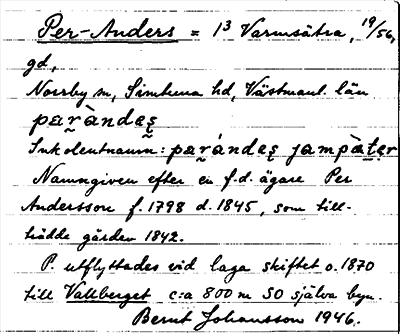 Per-Anders = 1³ Varmsätra, 19/56,
gd,
Norrby sn, Simtuna hd, Västmanl. län
paràndes
Inkolentnamn: parándes jampàter
Namngiven efter en f.d. ägare Per
Andersson f. 1798 d. 1845, som till-
trädde gården 1842.
P. utflyttades vid laga skiftet o. 1870
till Vallberget c:a 800 m SO själva byn.
Bernt Johansson 1946.